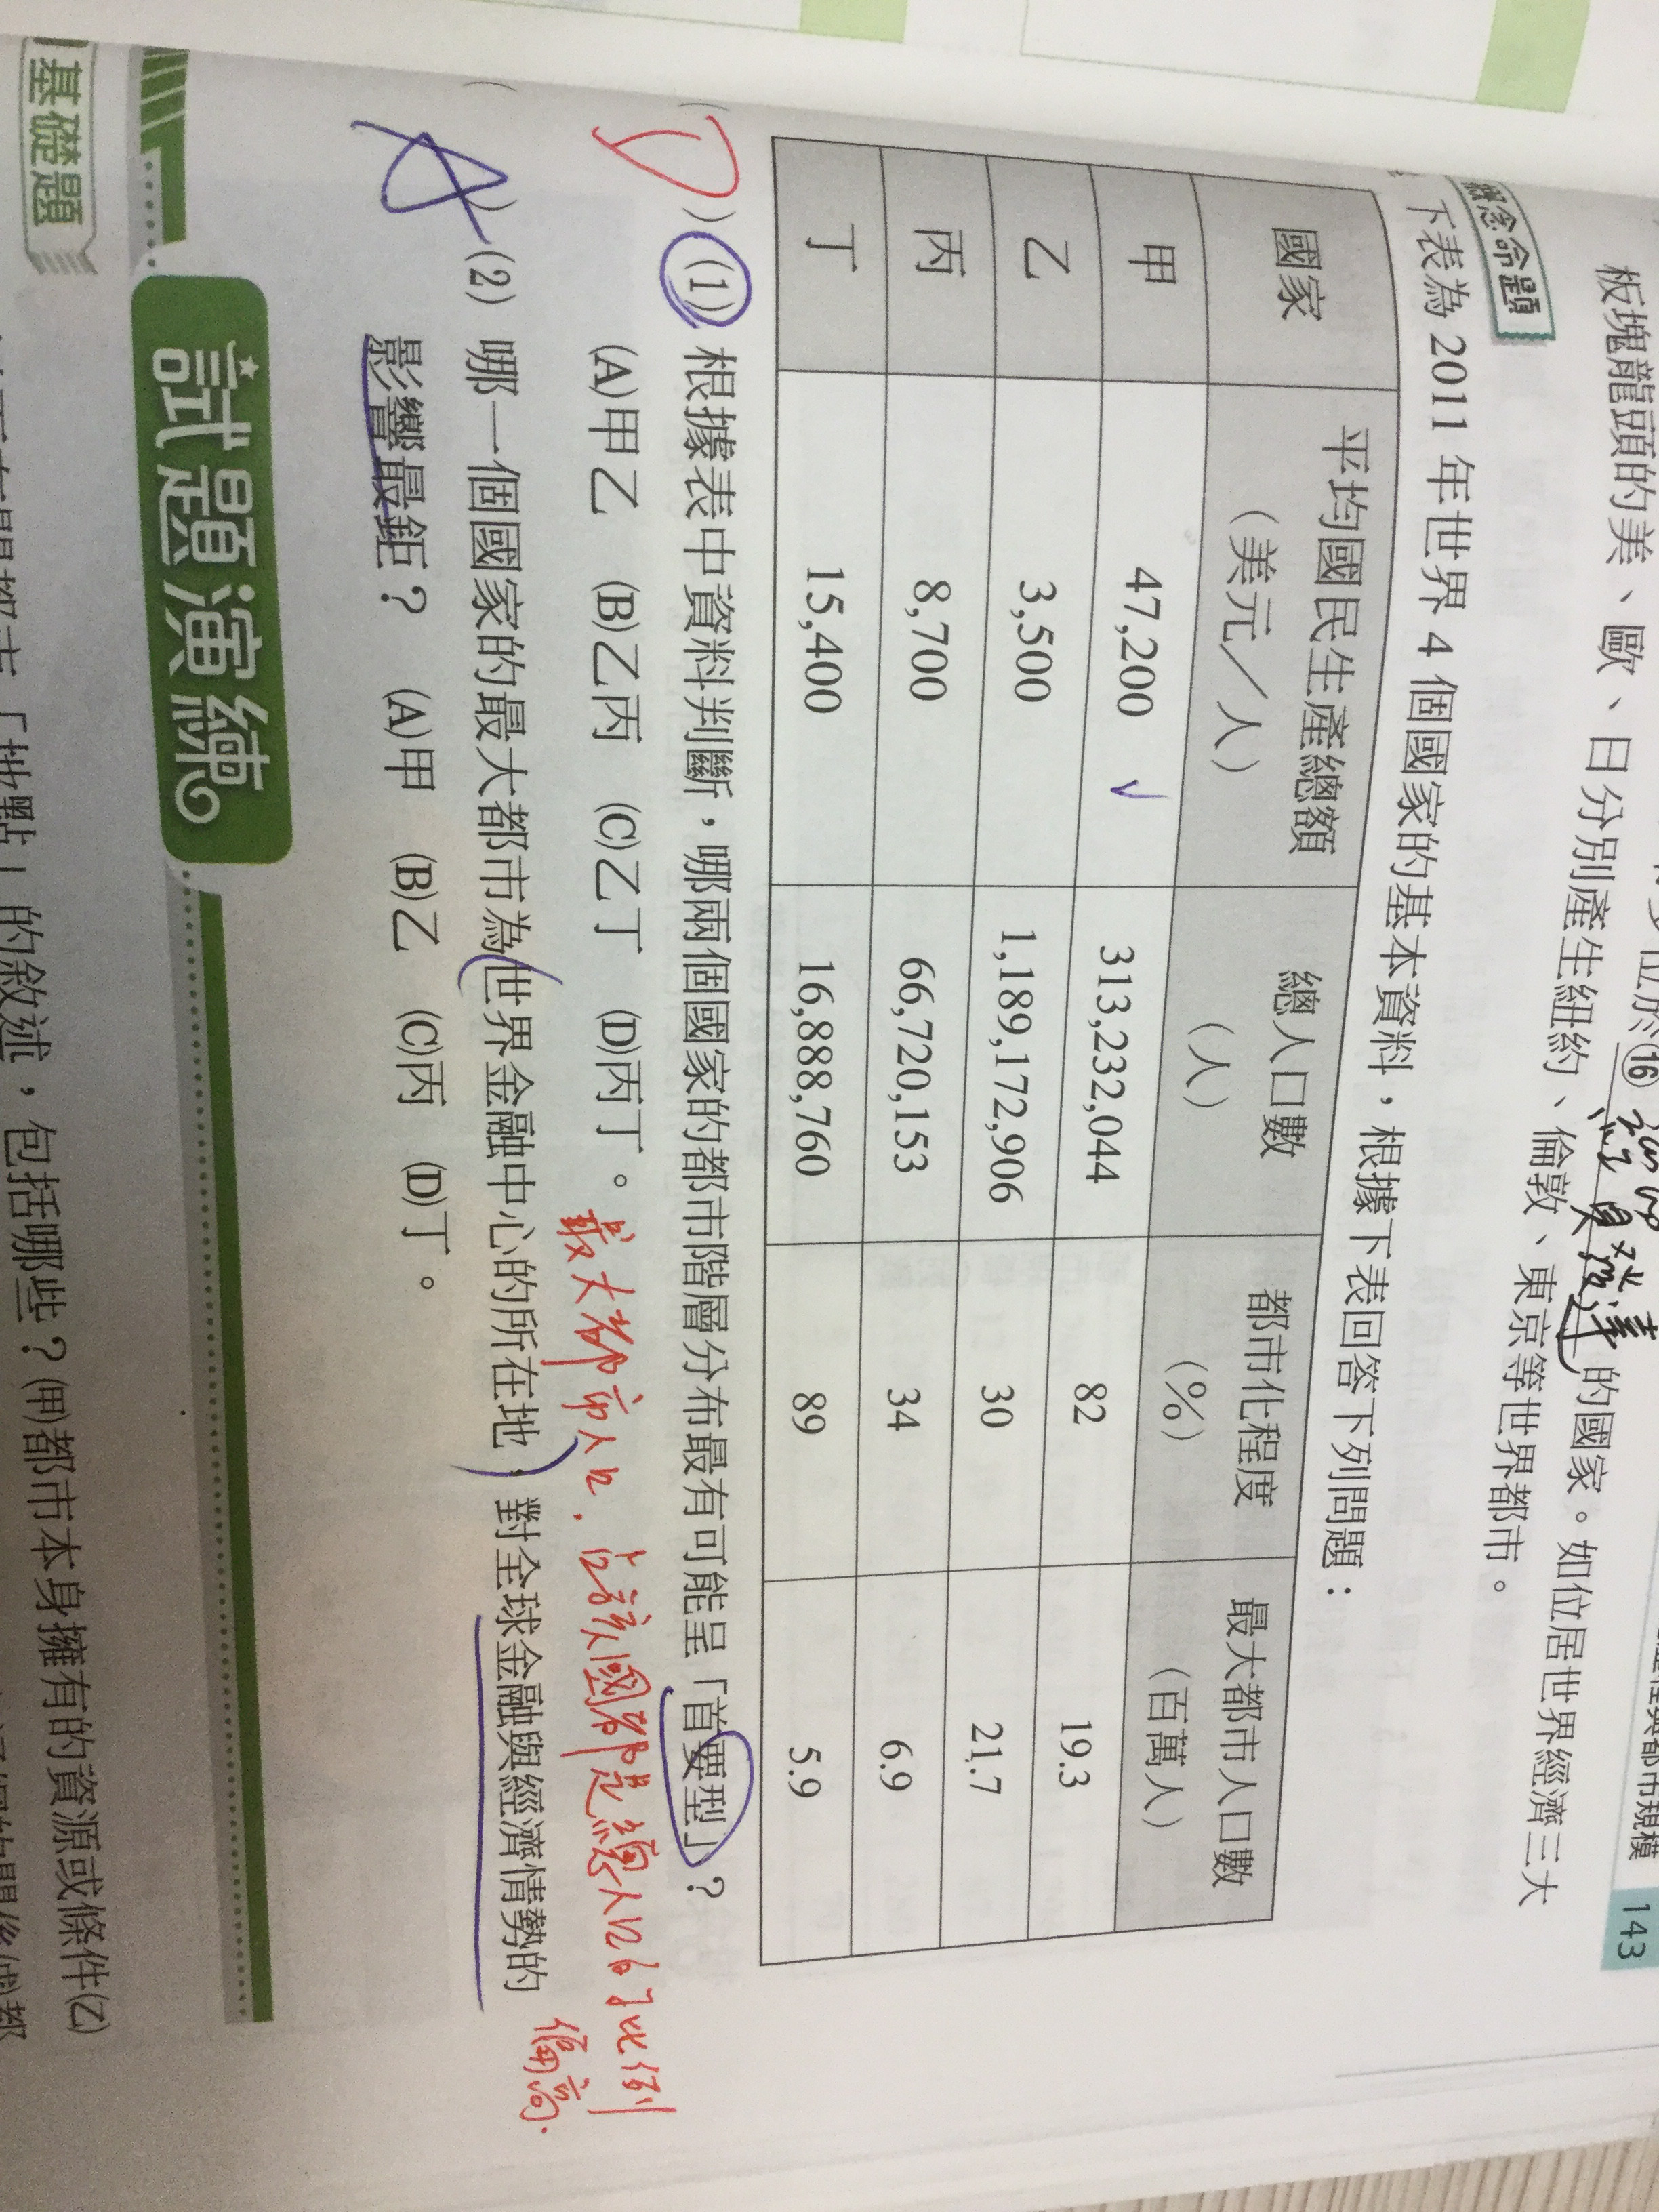 143
板塊龍頭的美、歐、日分別產生紐約、倫敦、東京等世界都市。
的國家。如位居世界經濟三大
概念命題
下表為 2011 年世界 4 個國家的基本資料，根據下表回答下列問題：
國家 平均國民生產總額（美元／人） 總人口數（人） 都市化程度（%） 最大都市人口數（百萬人）
甲 47,200 ✓ 313,232,044 82 19.3
乙 3,500 1,189,172,906 30 21.7
丙 8,700 66,720,153 34 6.9
丁 15,400 16,888,760 89 5.9
(D)(1) 根據表中資料判斷，哪兩個國家的都市階層分布最有可能呈「首要型」？
(A)甲乙 (B)乙丙 (C)乙丁 (D)丙丁。
最大都市人口，占該國都是總人口的比例
偏高.
(A)(2) 哪一個國家的最大都市為世界金融中心的所在地，對全球金融與經濟情勢的
影響最鉅？ (A)甲 (B)乙 (C)丙 (D)丁。
試題演練
基礎題
「地點」的敘述，包括哪些？(甲)都市本身擁有的資源或條件(乙)